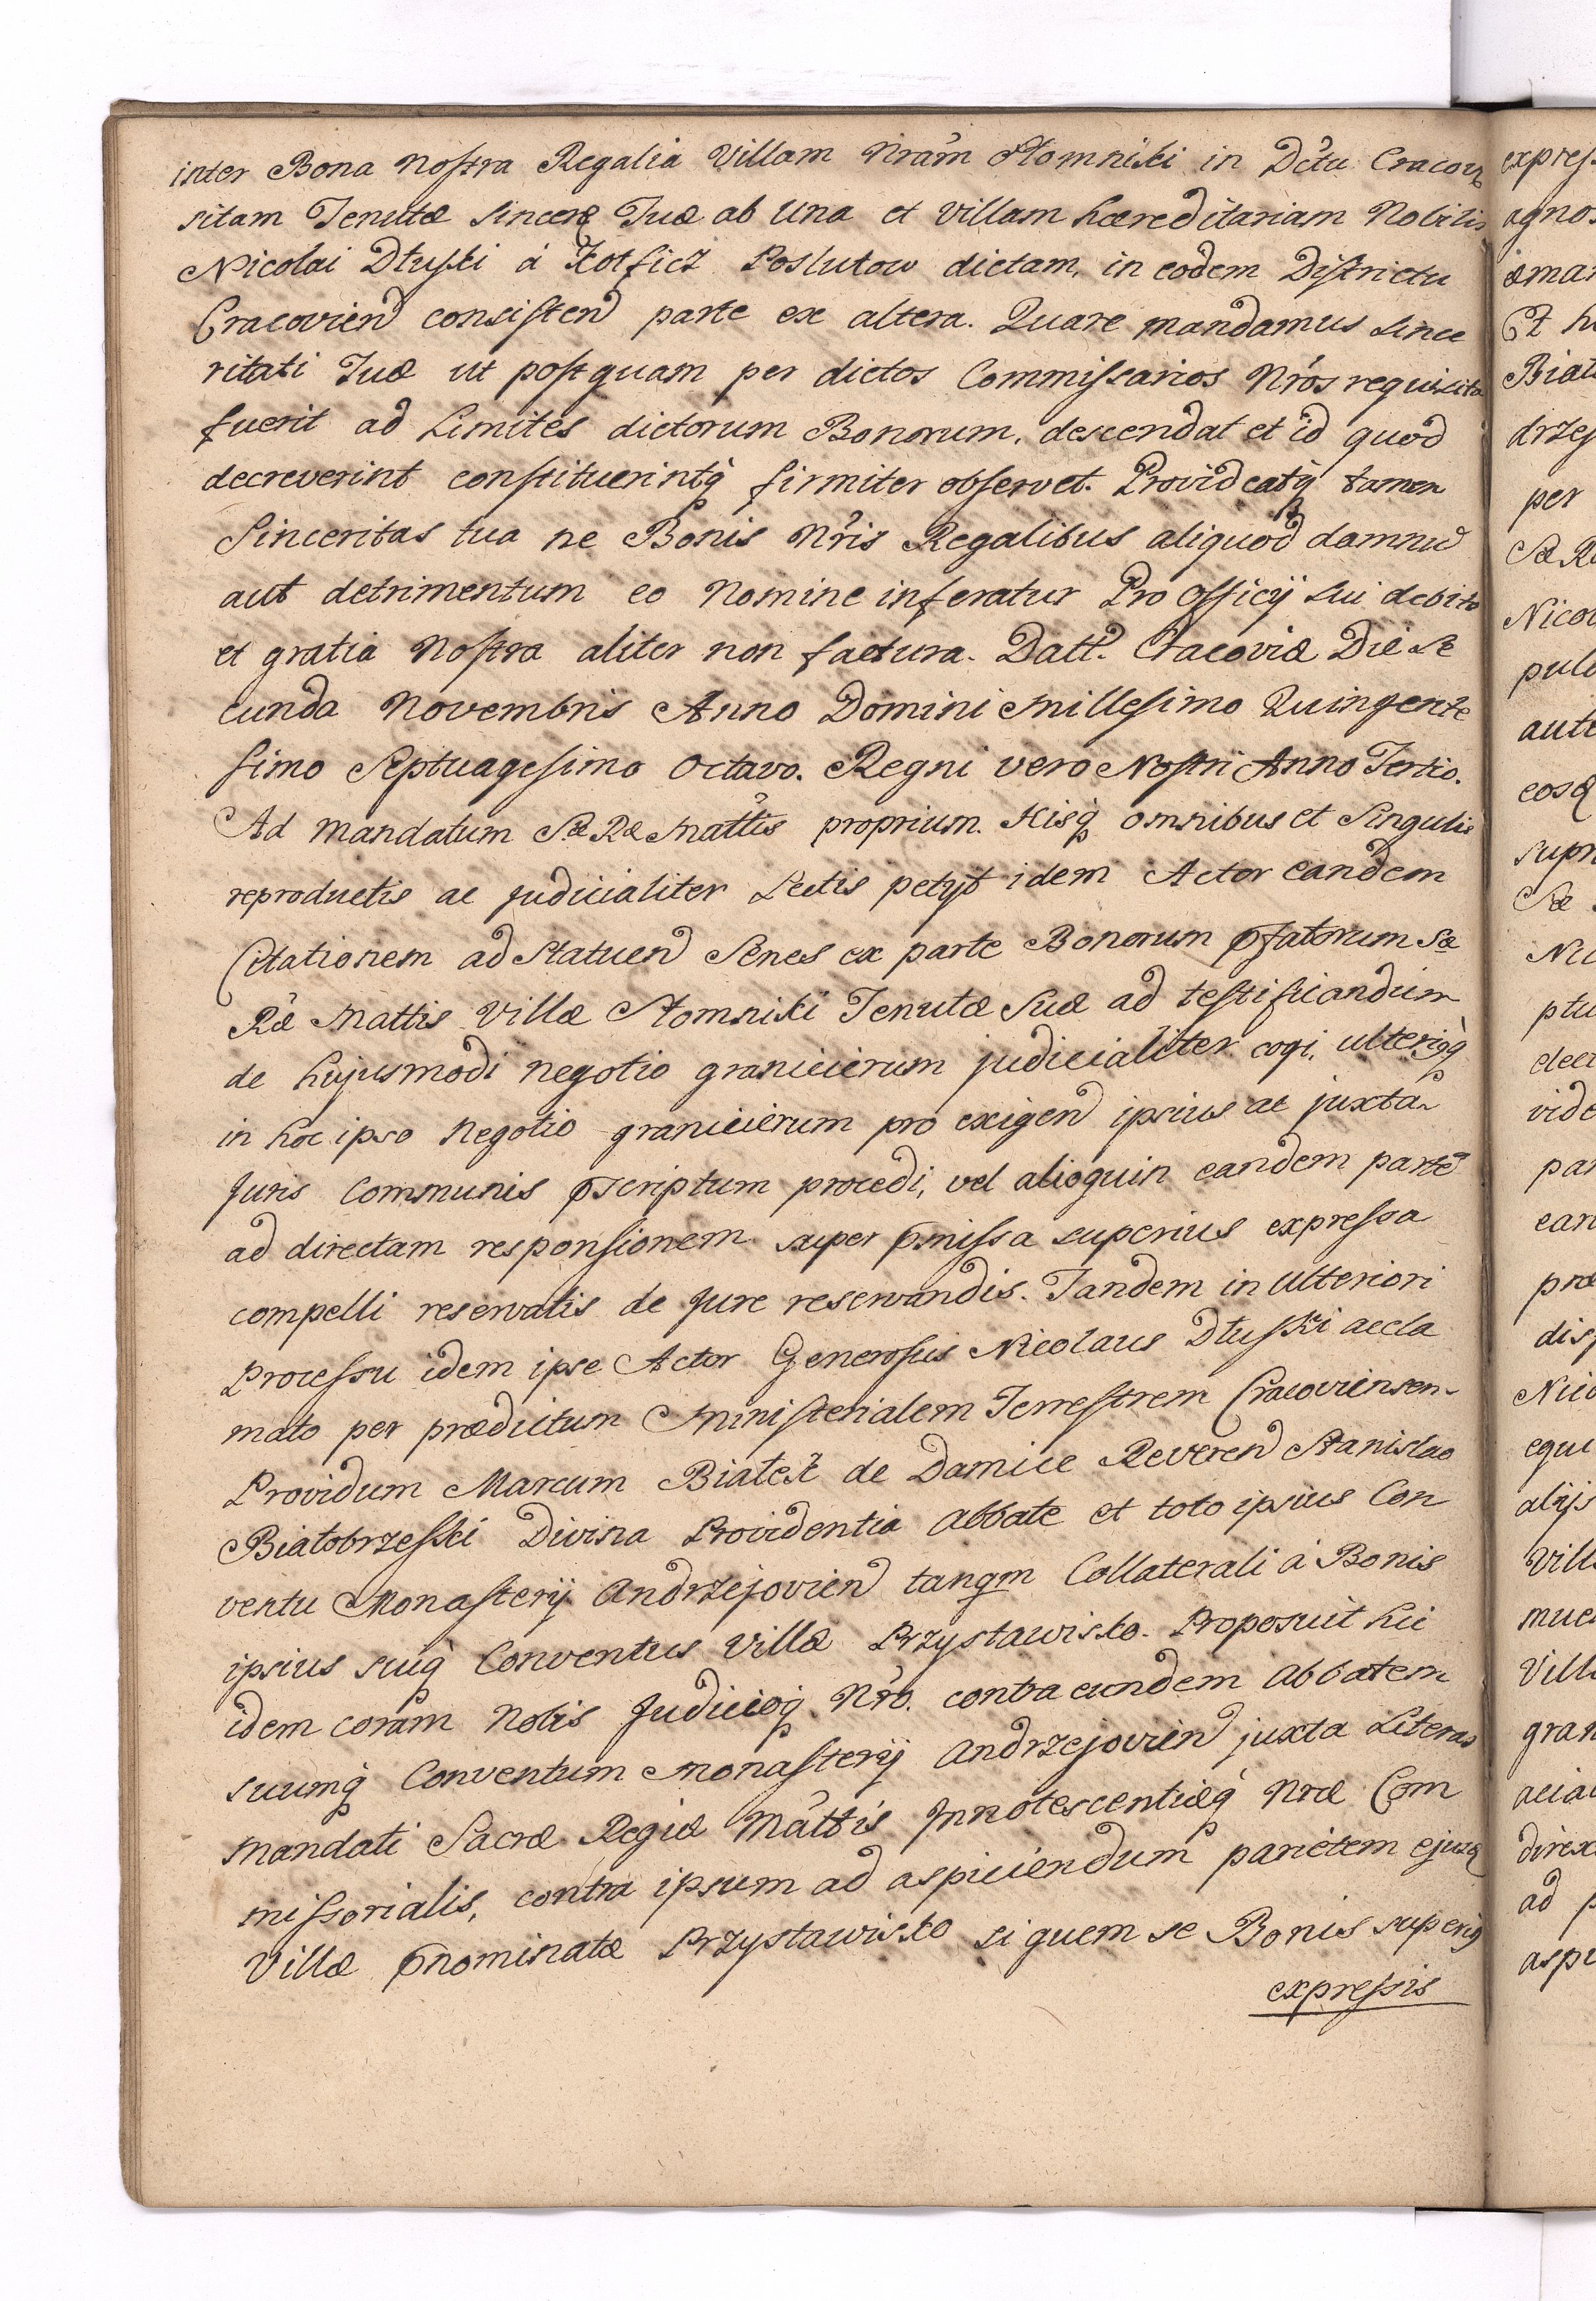 inter Bona Nostra Regalia Villam Nram Słomniki in Dctu Cracov
sitam Tenutæ Sinceræ Tuæ ab Una et Villam hæreditariam Nobilis
Nicolai Dłuski à Poslutow dictam, in eodem Districtu
Cracovien consisten parte ex altera. Quare mandamus since
ritati Tuæ ut postquam per dictos Commissarios Nros requisita
fuerit ad Limites dictorum Bonorum, descendat et id quod
decreverint constituerintq firmiter observet. Provideatq tamen
Sinceritas tua ne Bonis Nris Regalibus aliquod damnu
aut detrimentum eo Nomine inferatur Pro Officij sui debito
et gratia Nostra aliter non factura. Datt. Cracoviæ Die Se
cunda Novembris Anno Domini Millesimo Quingente
simo Septuagesimo Octavo. Regni vero Nostri Anno Tertio.
Ad mandatum Sæ Ræ Mattis proprium. Hisq omnibus et Singulis
reproductis ac Judicialiter Lectis petyt idem Actor eandem
Citationem ad Statuen Senes ex parte Bonorum pfatorum Sæ
Ræ Mattis Villæ Słomniki Tenutæ Suæ ad testificandum
de hujusmodi negotio granicierum judicialiter cogi, ulteriusq
in hoc ipso Negotio granicierum pro exigen ipsius ac juxta
Juris Communis pscriptum procedi, vel alioquin eandem parte
ad directam responsionem super pmissa superius expressa
compelli reservatis de Jure reservandis. Tandem in Ulteriori
Processu idem ipse Actor Generosus Nicolaus Dłuski accla
mato per prædictum Ministerialem Terrestrem Cracoviensem
Providum Marcum Białek de Damice Reveren Stanislao
Białobrzeski Divina Providentia Abbate et toto ipsius Con
ventu Monasterij Andrzejovien tanqm Collaterali à Bonis
ipsius suiq Conventus Villæ Przystawisko. Proposuit hic
idem coram Nobis Judicioq Nro. contra eundem Abbatem
suumq Conventum Monasterij Andrzejovien juxta Literas
Mandati Sacræ Regiæ Mattis Innotescentiæq Nræ Com
missorialis, contra ipsum ad aspiciendum parietem ejusd
Villæ pnominatæ Przystawisko si quem se Bonis superius
expressis